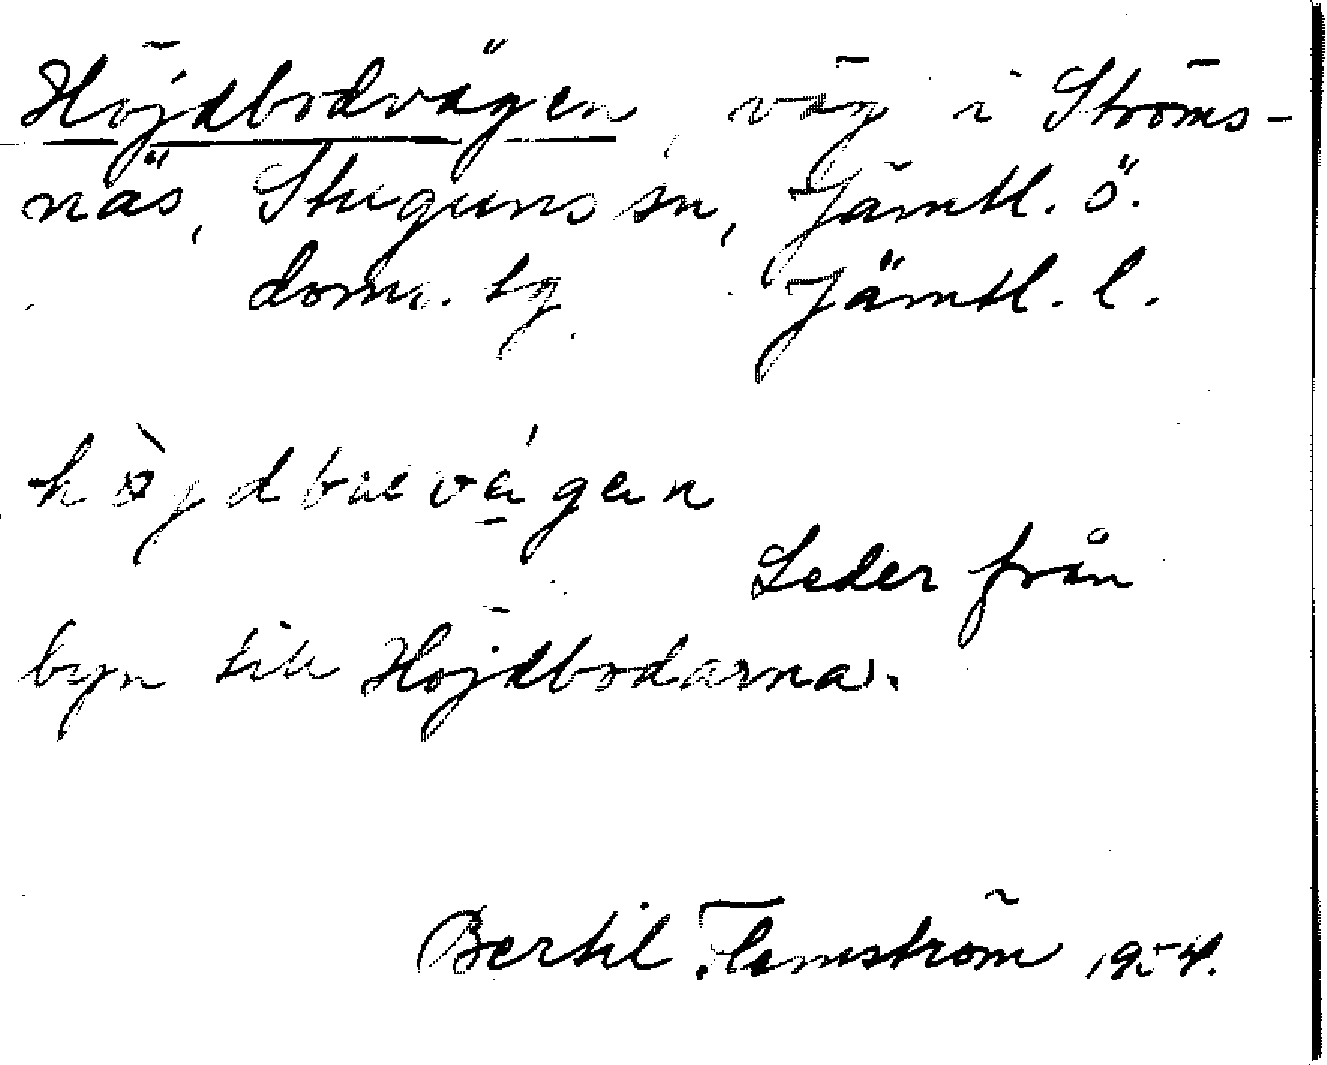 Höjdbodvägen, väg i Ströms-
näs, Stuguns sn, Jämtl. ö.
doms. tg Jämtl. l.
Leder från
byn till Höjdbodarna.
Bertil Flemström 1954.